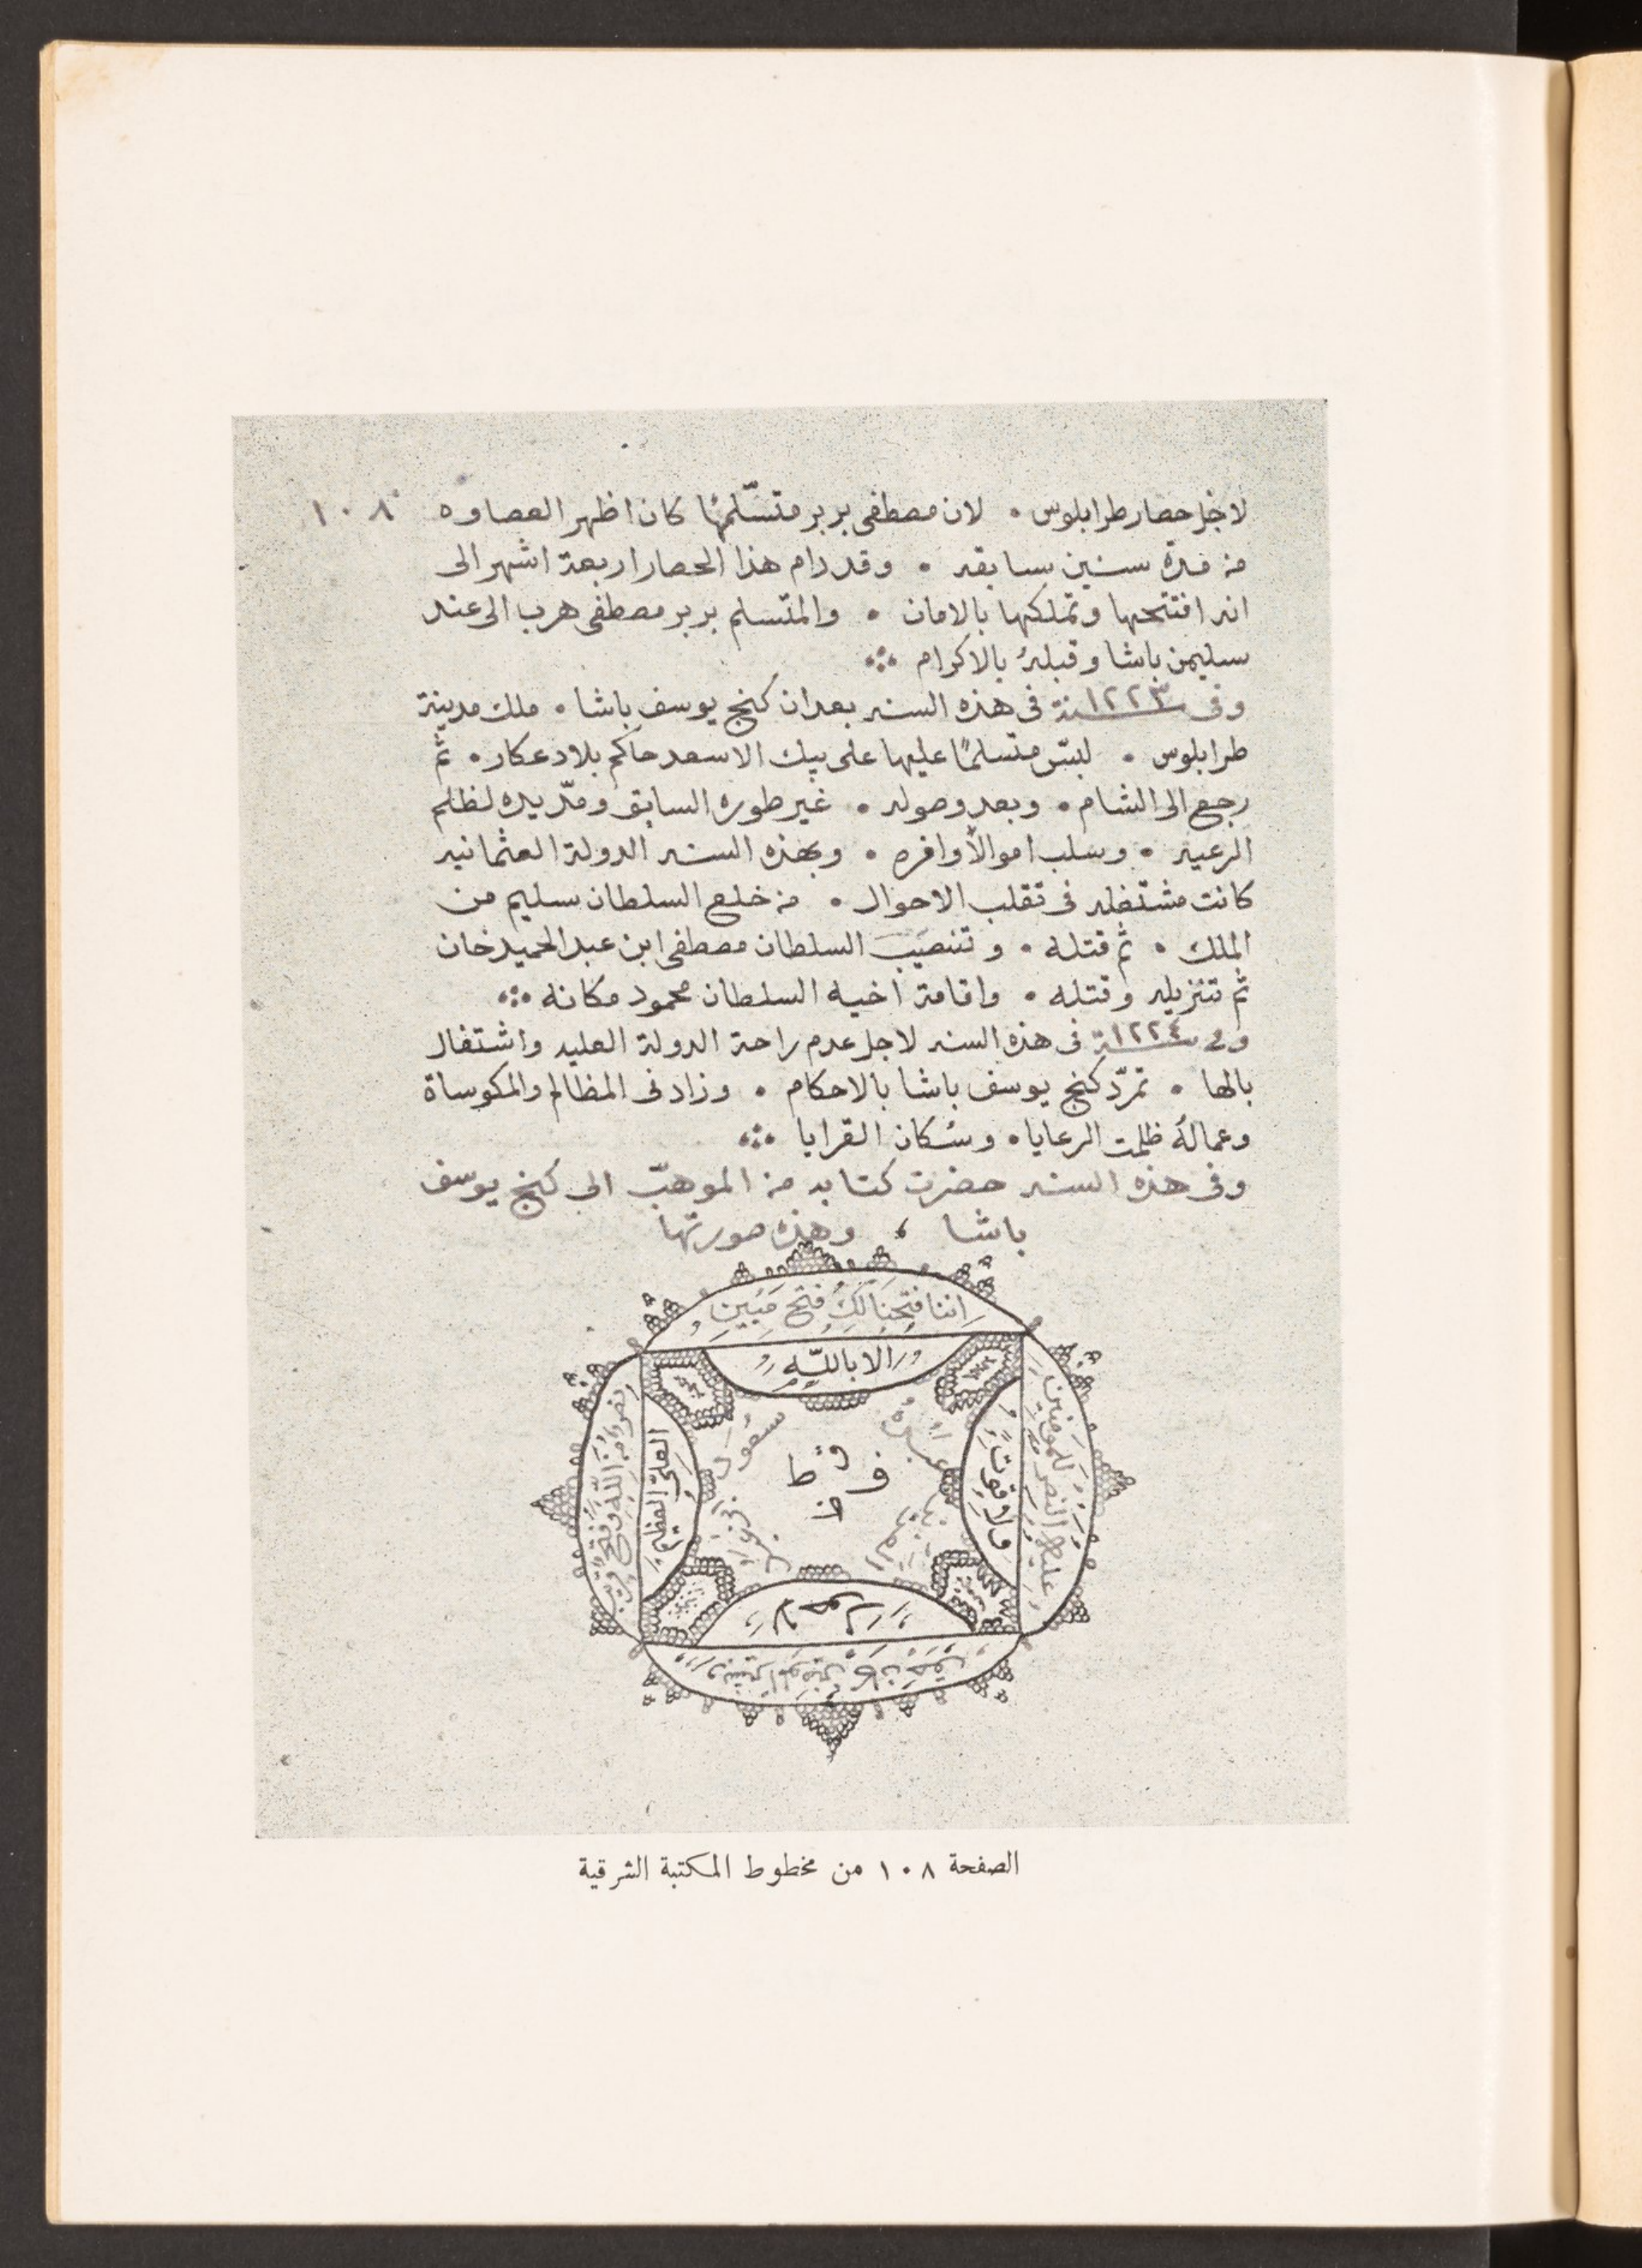 ١٠٨
لاجل حصار طرابلوس • لان مصطفى بربر متسّلمها كان اظهر العصاوه
من مدة سنين سابقه • وقد دام هذا الحصار اربعة اشهر الى
انه افتتحها وتملكها بالامان • والمتسلم بربر مصطفى هرب الى عند
سليمن باشا وقبلهُ بالاكرام
وفى سنة ١٢٢٣ فى هذه السنه بعد ان كنج يوسف باشا • ملك مدينة
طرابلوس • لبّس متسلمًا عليها على بيك الاسعد حاكم بلاد عكار • ثم
رجع الى الشام • وبعد وصوله • غير طوره السابق ومدّ يده لظلم
الرعيه • وسلب اموالاً وافره • وبهذه السنه الدولة العثمانيه
كانت مشتغله فى تقلب الاحوال • من خلع السلطان سليم من
الملك • ثم قتله • وتنصيب السلطان مصطفى ابن عبد الحميد خان
ثم تنزيله وقتله • واقامة اخيه السلطان محمود مكانه
وفى سنة ١٢٢٤ فى هذه السنه لاجل عدم راحة الدولة العليه واشتغال
بالها • تمرّد كنج يوسف باشا بالاحكام • وزاد فى المظالم والمكوساة
وعمالهُ ظلمت الرعايا • وسكان القرايا
وفى هذه السنه حضرت كتابه من الموهبّ الى كنج يوسف
باشا ، وهذه صورتها
اننا فتحنا لك فتح مبين
الا بالله
نصرا من الله وفتح قريب
العلىّ العظيم
سعود
عبده
ولا قوت
عليه النصر للمومنين
لا حول
الصفحة ١٠٨ من مخطوط المكتبة الشرقية